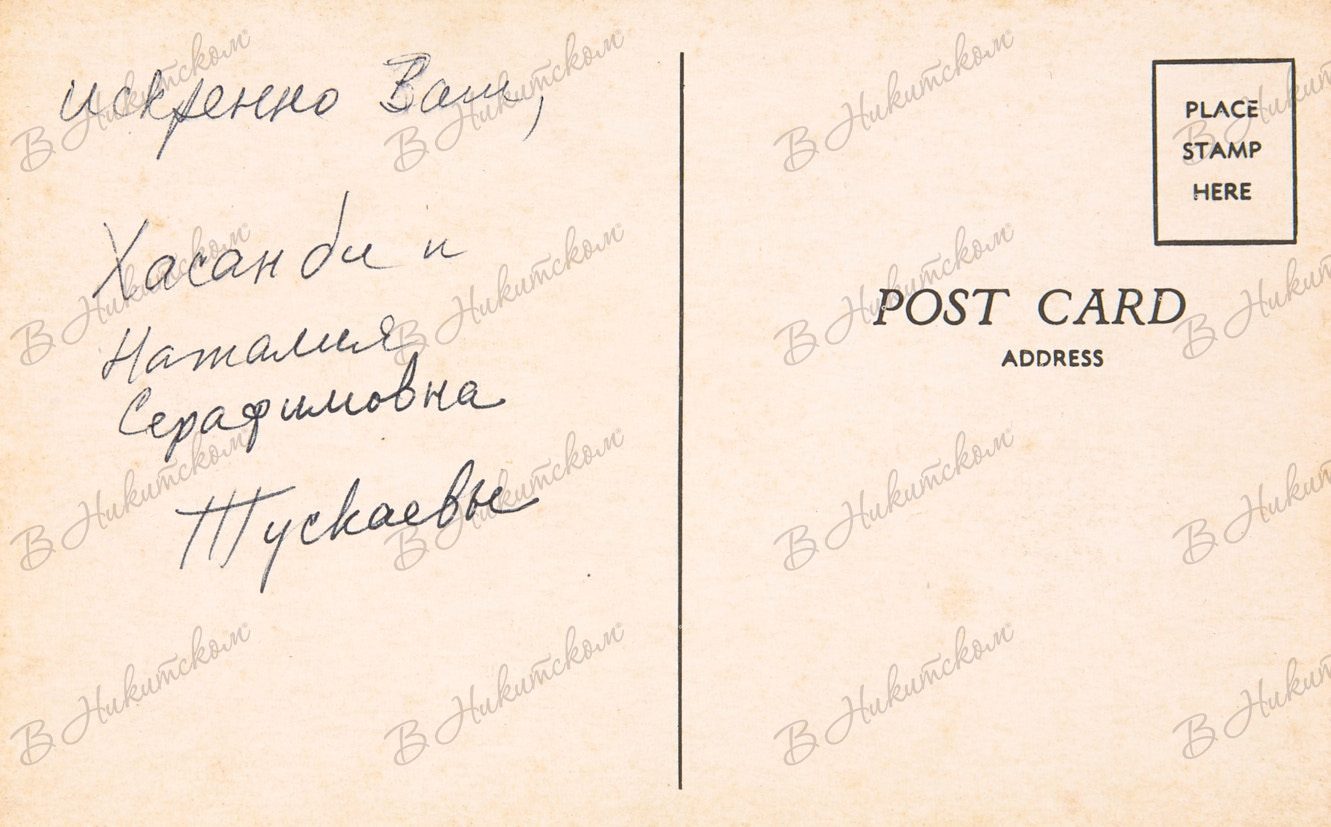 искренно Ваш,
Хасанби и
Наталия
Серафимовна
Тускаевы
PLACE
STAMP
HERE
POST CARD
ADDRESS
В Никитском